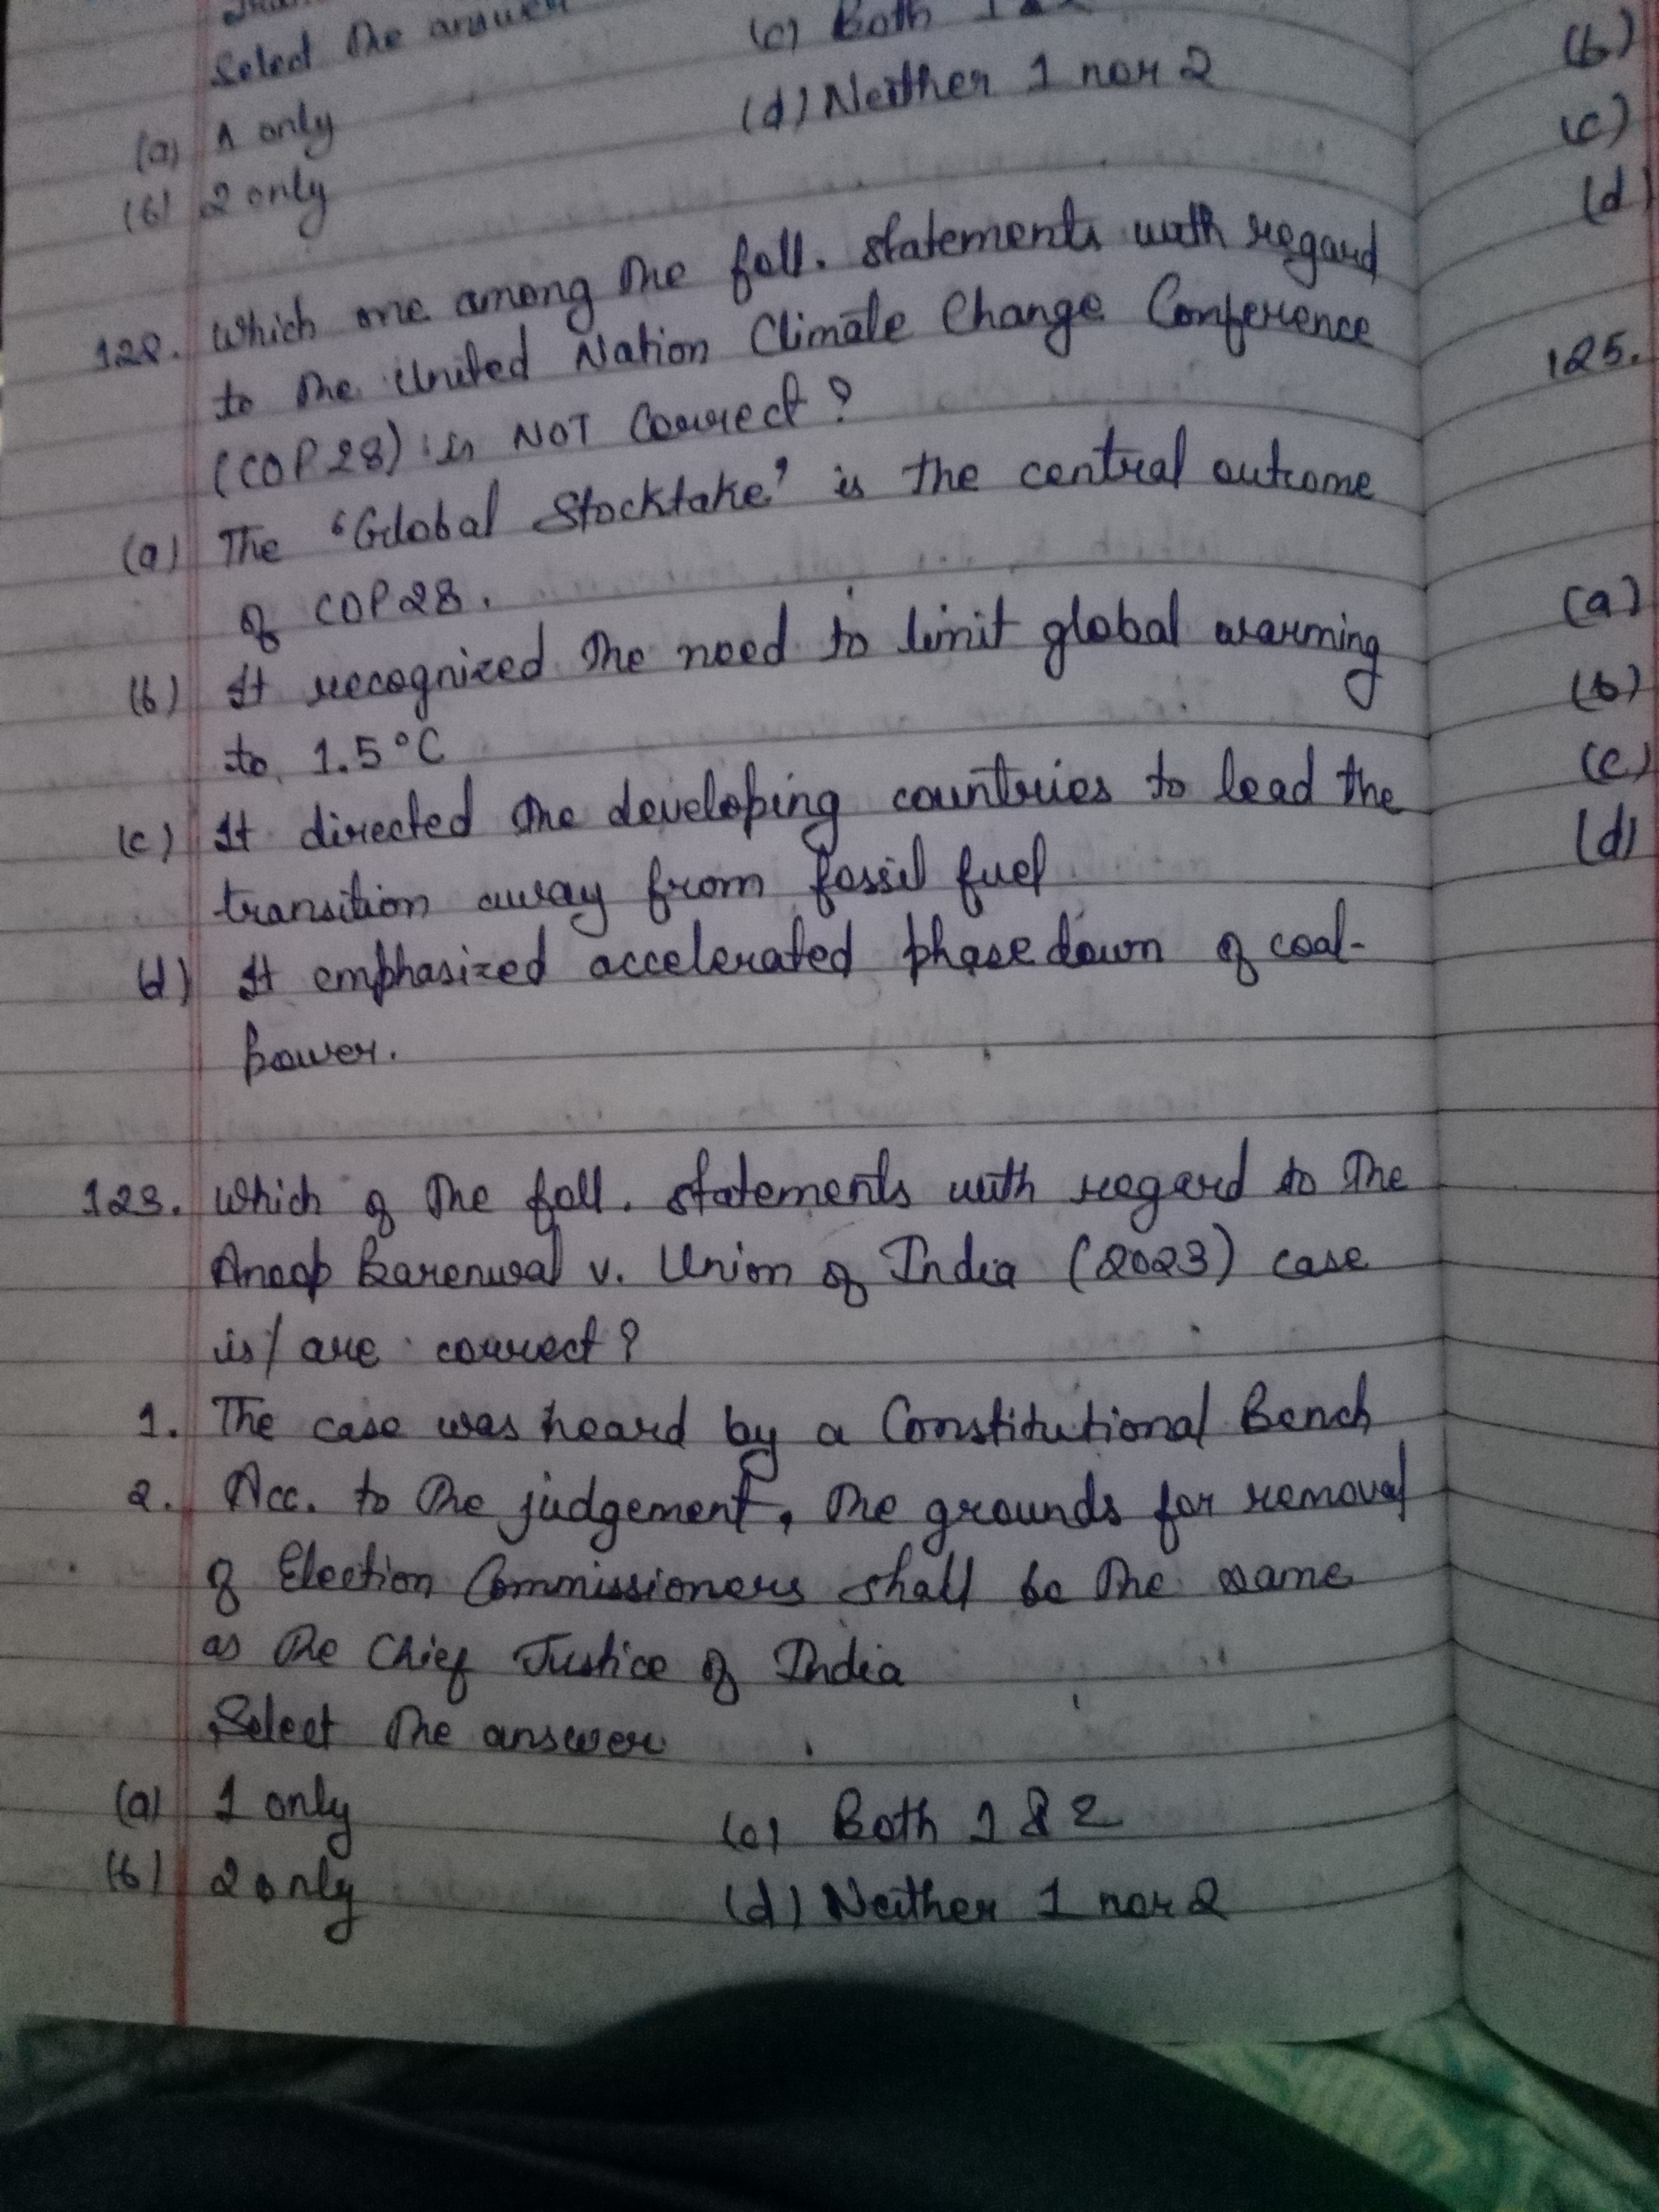 Select the answer
(c) Both 1 &
(a) 1 only
(d) Neither 1 nor 2
(b) 2 only
122. Which one among the foll. statements with regard
to the United Nation Climate Change Conference
(COP28) is NOT Correct?
(a) The 'Global Stocktake' is the central outcome
of COP28.
(b) It recognized the need to limit global warming
to 1.5°C
(c) It directed the developing countries to lead the
transition away from fossil fuel
(d) It emphasized accelerated phasedown of coal-
power.
123. Which of the foll. statements with regard to the
Anoop Baranwal v. Union of India (2023) case
is/are correct?
1. The case was heard by a Constitutional Bench
2. Acc. to the judgement, the grounds for removal
of Election Commissioners shall be the same
as the Chief Justice of India
Select the answer
(a) 1 only
(c) Both 1 & 2
(b) 2 only
(d) Neither 1 nor 2
(b)
(c)
(d)
125.
(a)
(b)
(c)
(d)